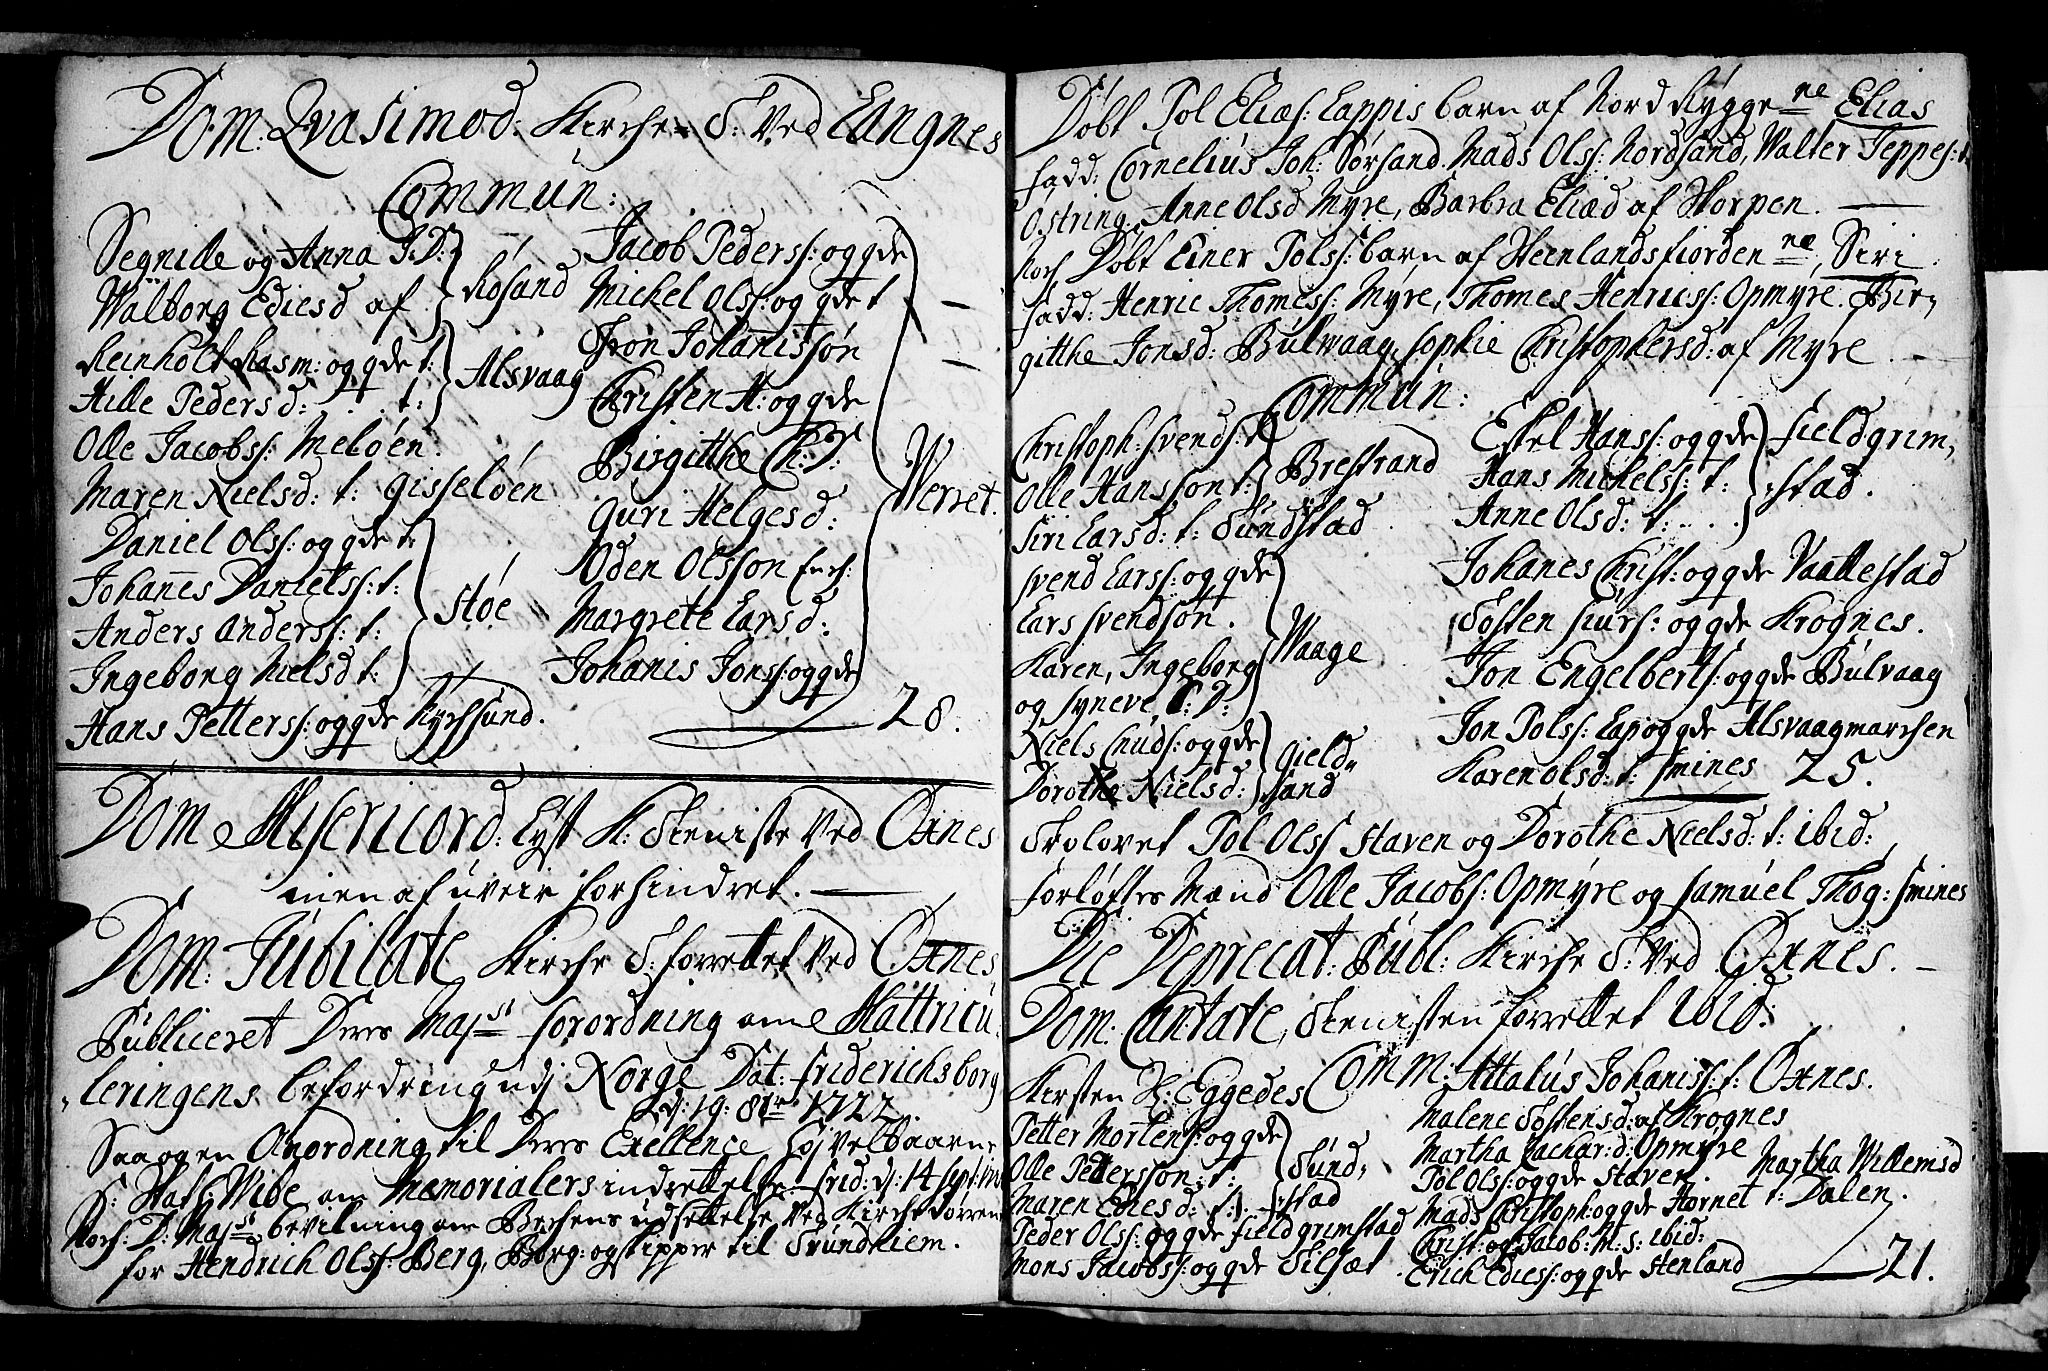 Dom: Qvasimod: Kirche S: Ved Langnes
Commun:
Segnille og Anna P:D:
Walborg Ediesd af
Røsand
Reinholt Rasm: og qde t:
Alsvaag
Hille Pedersd: . . t:
Olle Jacobss: Meløen.
Maren Nielsd: t: Gisseløen
Daniel Olss: og qde t:
Johannes Danielss: t:
Støe
Anders Anderss: t:
Ingeborg Nielsd t:
Hans Petterss: og qde Kyrchsund.
Jacob Pederss: og qde
Michel Olss: og qde t
Tron Johannissøn
Christen H: og qde
Birgitthe Ch: D:
Guri Helgesd:
Werret.
Oden Olsson Ench:
Margrete Larsd:
Johanis Jonss: og qde
28.
Dom Misericord: Lyst K: Tieniste Ved Øxnes
men af uveir forhindret.
Dom: Jubilate Kirche S: forrettet Ved Øxnes,
Publiceret Deris Majst forordning om Mattricu,
leringens befordring udj Norge Dat: friderichsborg
d: 19: 8br 1722.
Saa og en Anordning til Deris Exellence Høyvelbaarne
D: Wibe om Memorialers indrettelse frid: d: 14 Sept:
Noch: D: Majst: bevilning om Bechens udsettelse Ved Kirche dørren
for Hendrich Olss: Berg, Borg: og skipper til Trundhiem.
Døbt Pol Eliæs: Lappis barn af Nord Rygge ne Elias
fadd: Cornelius Joh: Sørsand. Mads Olss: Nordsand, Walter Jeppes: t
Ostring, Anne Olsd Myre, Barbra Eliæd af Skorpen.
Noch Døbt Einer Polss: barn af Steinlandsfiorden ne, Siri
fadd: Henric Thomess: Myre, Thomes Henricss: Opmyre. Bir,
gitthe Jonsd: Bulvaag, sophie Christophersd: af Myre
Commun:
Christoph: Svends: t
Olle Hanssøn t:
Brestrand
Siri Larsd: t: Sundstad
Svend Larss: og qde
Lars Svendsøn.
Karen, Ingeborg
Waage
og Syneve, S: D:
Niels Cnuds: og qde
Gield,
Dorothe Nielsd:
sand
Eskel Hanss: og qde
fieldgrim,
Hans Michelss: t:
stad.
Anne Olsd: t: . .
Johanes Christ: og qde Vaattestad
Tosten Siurs: og qde Krognes.
Jon Engelberts: og qde Bulvaag
Jon Polss: Lap og qde Alsvaagmarchen
Karen Olsd: t: Smines 25.
Troloved Pol Olss Staven og Dorothe Nielsd: t: ibid:
forløftes Mænd Olle Jacobs: Opmyre og Samuel Thog: Smines
Die Deprecat: Publ: Kirche S: Ved Øxnes.
Dom: Cantate, Tienisten forrettet Ibid:
Comm:
Kirsten H: Eggedes
Petter Mortens: og qde
Olle Petterssøn: t:
Sund,
stad
Maren Ediesd: t:
Peder Olss: og qde fieldgrimstad
Mons Jacobss: og qde Tilsæt
Attalus Johaniss: t: Øxnes.
Malene Tostensd: af Krognes
Martha Zachar: d: Opmyre
Pol Olss: og qde Staven.
Martha Willemsd
Mads Christoph: og qde Hornet t: Dalen.
Christ: og Jacob: M: S: ibid:
Erich Ediess: og qde Stenland
21.